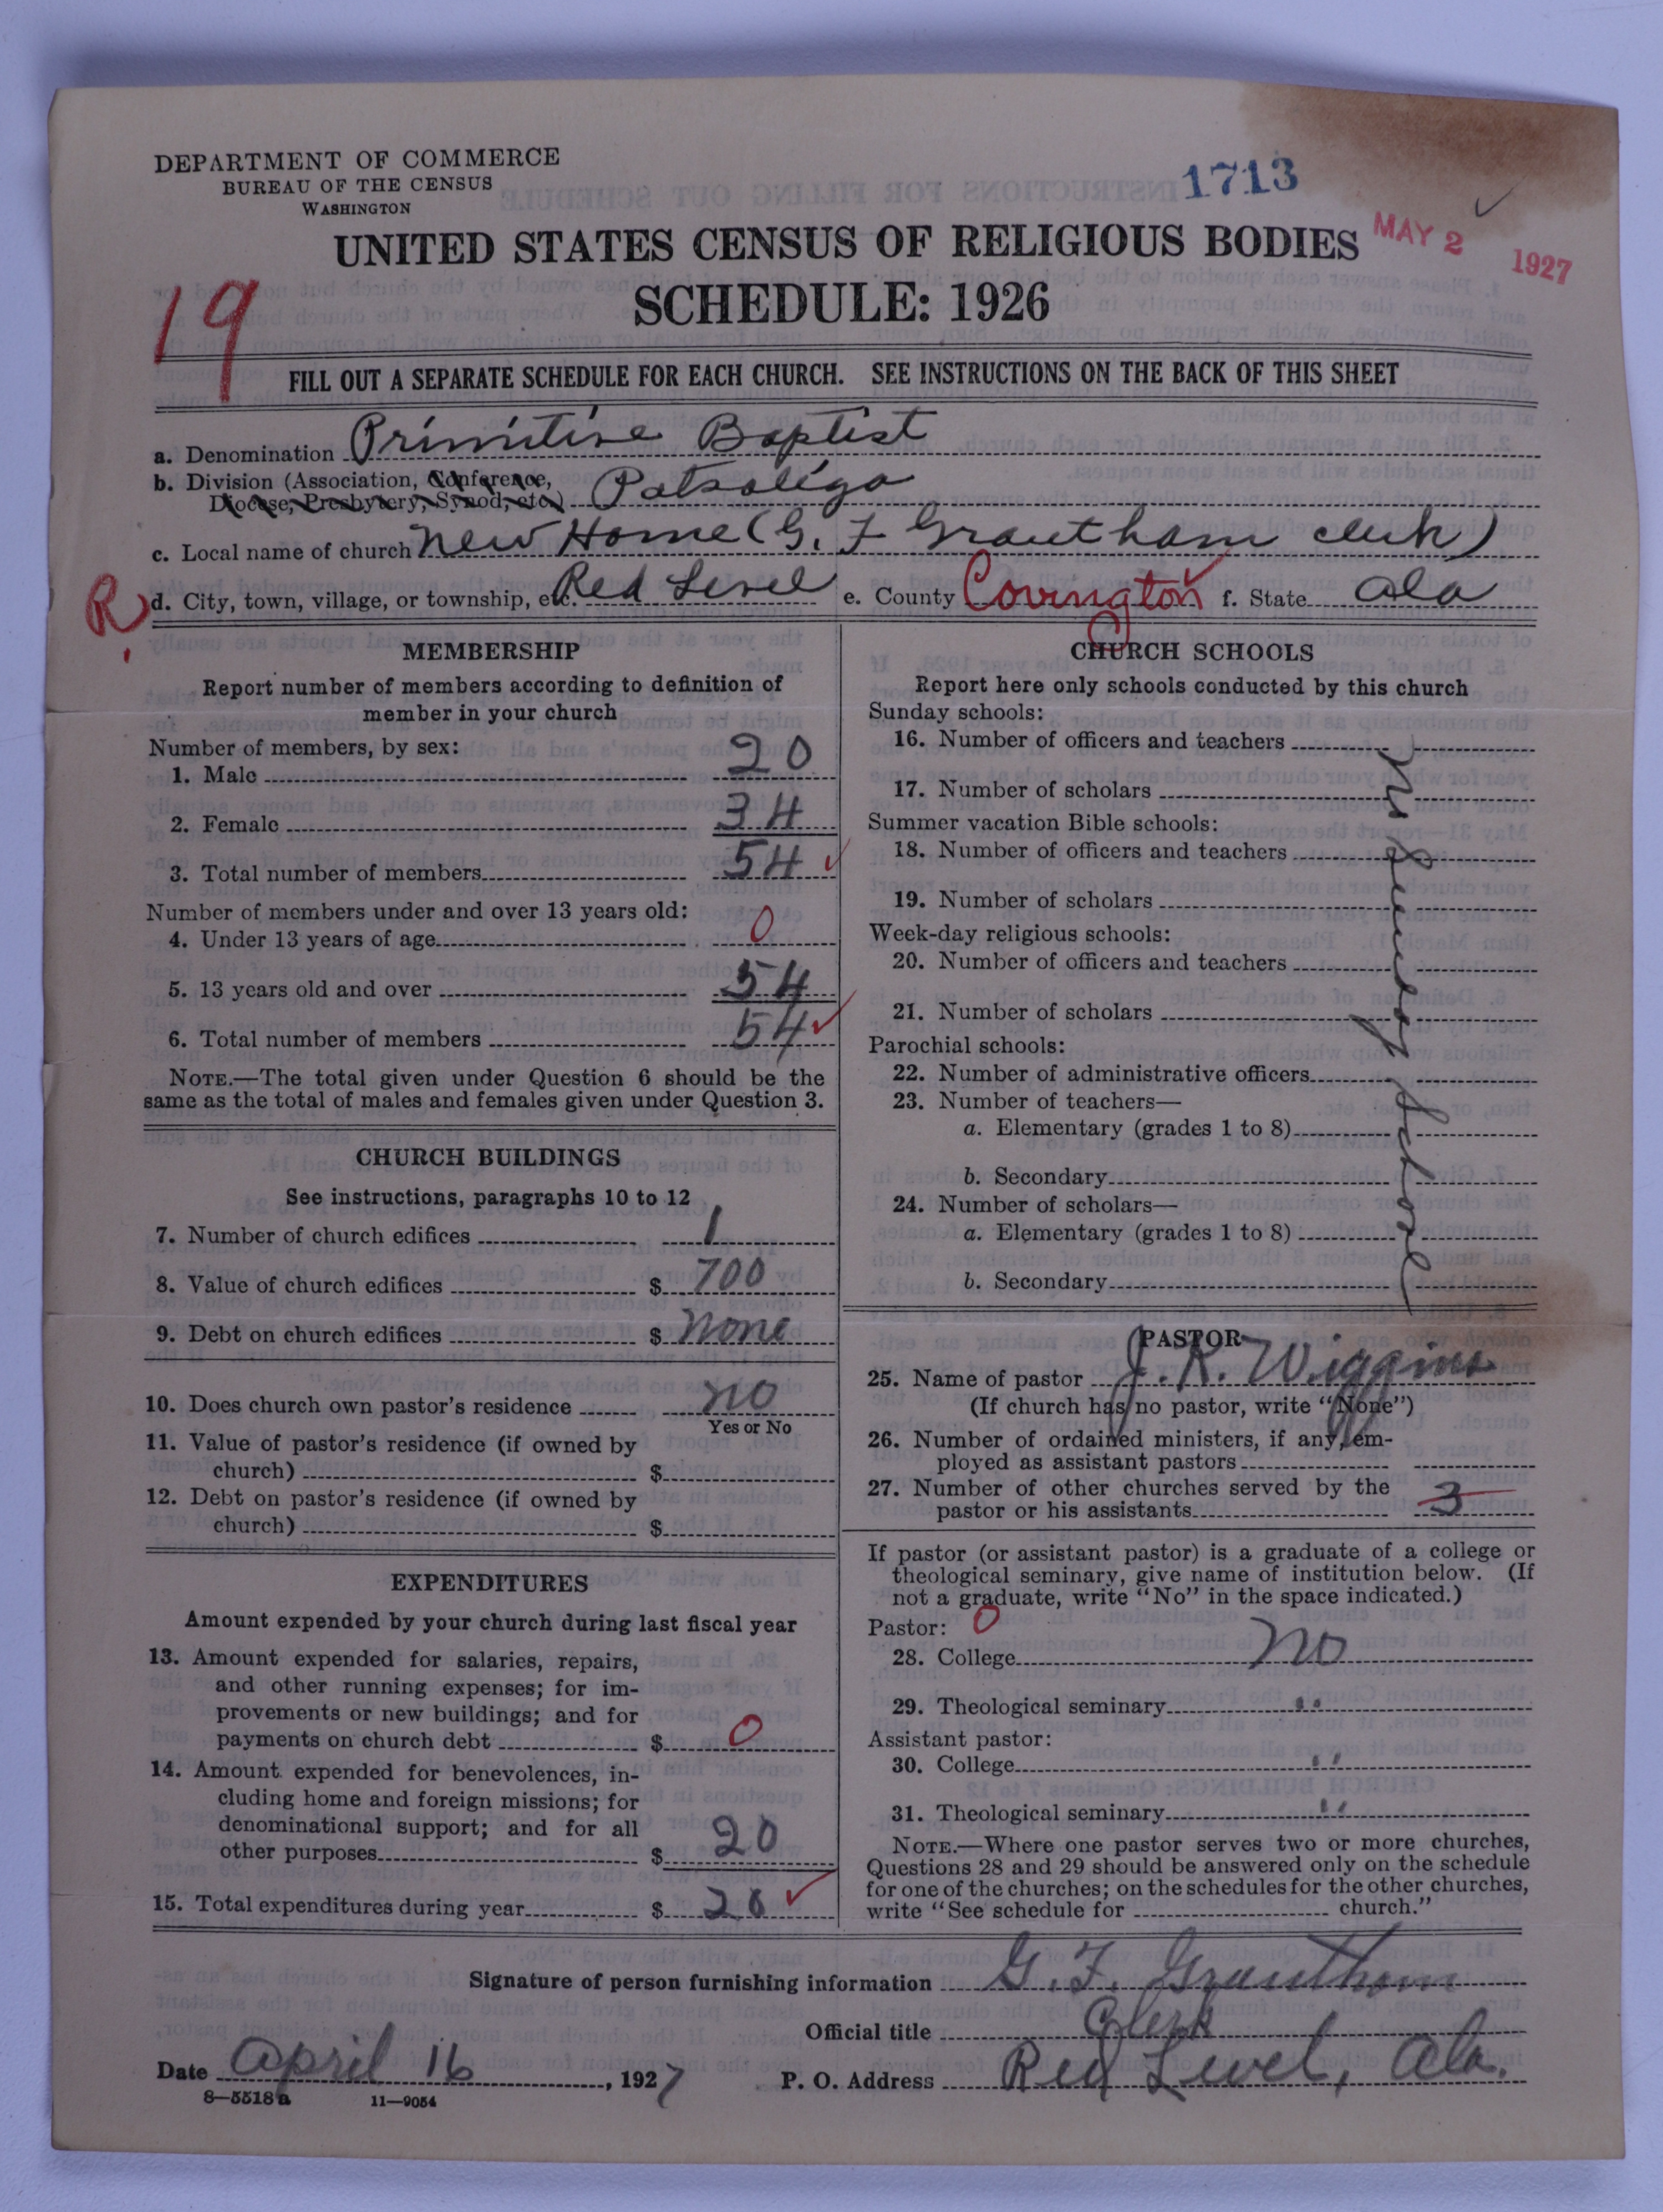 DEPARTMENT OF COMMERCE
BUREAU OF THE CENSUS
WASHINGTON
1713
MAY 2 1927
UNITED STATES CENSUS OF RELIGIOUS BODIES
SCHEDULE: 1926
19
FILL OUT A SEPARATE SCHEDULE FOR EACH CHURCH. SEE INSTRUCTIONS ON THE BACK OF THIS SHEET
a. Denomination Primitive Baptist
b. Division (Association, Conference,
Diocese, Presbytery, Synod, etc.) Patsaliga
c. Local name of church New Home (G. F Grantham clerk)
R d. City, town, village, or township, etc. Red Level e. County Covington f. State Ala
MEMBERSHIP
Report number of members according to definition of
member in your church
Number of members, by sex:
1. Male 20
2. Female 34
3. Total number of members 54
Number of members under and over 13 years old:
4. Under 13 years of age 0
5. 13 years old and over 54
6. Total number of members 54
NOTE.—The total given under Question 6 should be the
same as the total of males and females given under Question 3.
CHURCH BUILDINGS
See instructions, paragraphs 10 to 12
7. Number of church edifices 1
8. Value of church edifices $ 700
9. Debt on church edifices $ none
10. Does church own pastor's residence no
Yes or No
11. Value of pastor's residence (if owned by
church) $
12. Debt on pastor's residence (if owned by
church) $
EXPENDITURES
Amount expended by your church during last fiscal year
13. Amount expended for salaries, repairs,
and other running expenses; for im-
provements or new buildings; and for
payments on church debt $ 0
14. Amount expended for benevolences, in-
cluding home and foreign missions; for
denominational support; and for all
other purposes $ 20
15. Total expenditures during year $ 20
CHURCH SCHOOLS
Report here only schools conducted by this church
Sunday schools:
16. Number of officers and teachers
17. Number of scholars
Summer vacation Bible schools:
18. Number of officers and teachers
19. Number of scholars
Week-day religious schools:
20. Number of officers and teachers
21. Number of scholars
Parochial schools:
22. Number of administrative officers
23. Number of teachers—
a. Elementary (grades 1 to 8)
b. Secondary
24. Number of scholars—
a. Elementary (grades 1 to 8)
b. Secondary
PASTOR
25. Name of pastor J. R. Wiggins
(If church has no pastor, write "None")
26. Number of ordained ministers, if any, em-
ployed as assistant pastors
27. Number of other churches served by the
pastor or his assistants 3
If pastor (or assistant pastor) is a graduate of a college or
theological seminary, give name of institution below. (If
not a graduate, write "No" in the space indicated.)
Pastor: 0
28. College no
29. Theological seminary "
Assistant pastor:
30. College "
31. Theological seminary "
NOTE.—Where one pastor serves two or more churches,
Questions 28 and 29 should be answered only on the schedule
for one of the churches; on the schedules for the other churches,
write "See schedule for church."
Signature of person furnishing information G. F. Grantham
Official title Clerk
Date April 16, 1927 P. O. Address Red Level, Ala.
8—5518a 11—9054